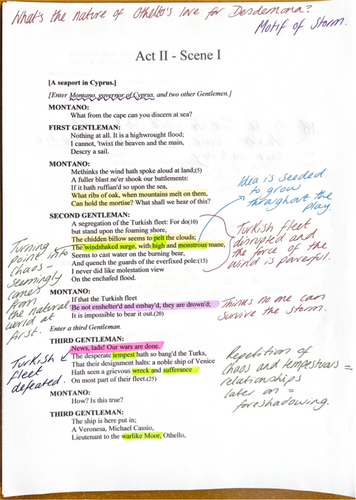 What's the nature of Othello's love for Desdemona?
Motif of Storm.
Act II - Scene I
[A seaport in Cyprus.]
[Enter Montano, governor of Cyprus, and two other Gentlemen.]
MONTANO:
What from the cape can you discern at sea?
FIRST GENTLEMAN:
Nothing at all. It is a highwrought flood;
I cannot, 'twixt the heaven and the main,
Descry a sail.
MONTANO:
Methinks the wind hath spoke aloud at land;(5)
A fuller blast ne'er shook our battlements:
If it hath ruffian'd so upon the sea,
What ribs of oak, when mountains melt on them,
Can hold the mortise? What shall we hear of this?
Idea is seeded
to grow
throughout the
play
SECOND GENTLEMAN:
A segregation of the Turkish fleet: For do(10)
but stand upon the foaming shore,
The chidden billow seems to pelt the clouds;
The windshaked surge, with high and monstrous mane,
Seems to cast water on the burning bear,
And quench the guards of the everfixed pole:(15)
I never did like molestation view
On the enchafed flood.
Turkish fleet
disrupted and
the force of the
world is powerful.
Turning
point into
chaos -
seemingly
from
the natural
world at
first.
MONTANO:
If that the Turkish fleet
Be not enshelter'd and embay'd, they are drown'd;
It is impossible to bear it out.(20)
Thinks no one can
survive the storm.
Enter a third Gentleman.
THIRD GENTLEMAN:
News, lads! Our wars are done.
The desperate tempest hath so bang'd the Turks,
That their designment halts: a noble ship of Venice
Hath seen a grievous wreck and sufferance
On most part of their fleet.(25)
Turkish
fleet
defeated.
Repetition of
chaos and tempestuous =
relationships
later on =
foreshadowing.
MONTANO:
How? Is this true?
THIRD GENTLEMAN:
The ship is here put in;
A Veronesa, Michael Cassio,
Lieutenant to the warlike Moor, Othello,